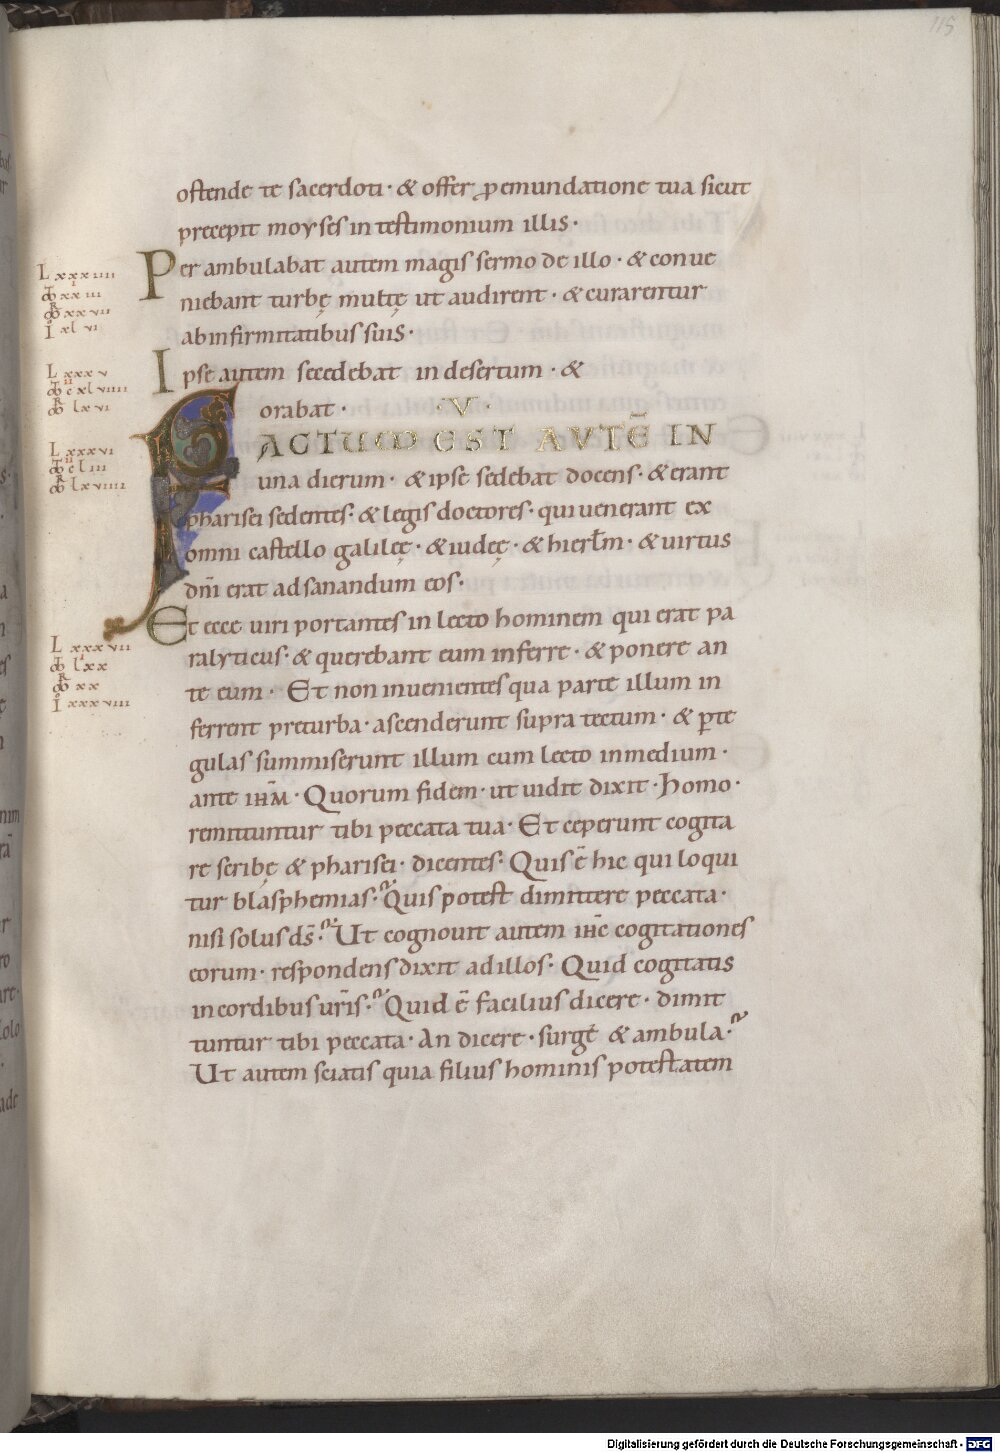 115
ostende te sacerdoti · & offer ꝓ emundatione tua sicut
precepit moyses in testimonium illis ·
Per ambulabat autem magis sermo de illo · & conue
niebant turbę multę ut audirent · & curarentur
ab infirmitatibus suis ·
Ipse autem secedebat in desertum · &
orabat · · V ·
FACTUM EST AVTĒ IN
una dierum · & ipse sedebat docens · & erant
pharisei sedentes · & legis doctores · qui uenerant ex
omni castello galileę · & iudeę · & hierłm · & uirtus
dn̄i erat ad sanandum eos ·
Et ecce uiri portantes in lecto hominem qui erat pa
ralyticus · & querebant eum inferre · & ponere an
te eum · Et non inuenientes qua parte illum in
ferrent pre turba · ascenderunt supra tectum · & ꝑ te
gulas summiserunt illum cum lecto in medium ·
ante ihm̄ · Quorum fidem · ut uidit dixit · Homo ·
remittuntur tibi peccata tua · Et ceperunt cogita
re scribę & pharisei · dicentes · Quis ē hic qui loqui
tur blasphemias · Quis potest dimittere peccata ·
nisi solus ds̄ · Ut cognouit autem ihc̄ cogitationes
eorum · respondens dixit ad illos · Quid cogitatis
in cordibus ur̄is · Quid ē facilius dicere · dimit
tuntur tibi peccata · An dicere · surge & ambula ·
Ut autem sciatis quia filius hominis potestatem
L xxxiiii
xxiii
xxvii
I xlvi
L xxxv
cxlviiii
lxvi
L xxxvi
cliii
lxviiii
L xxxvii
lxx
xx
I xxxviii
Digitalisierung gefördert durch die Deutsche Forschungsgemeinschaft - DFG